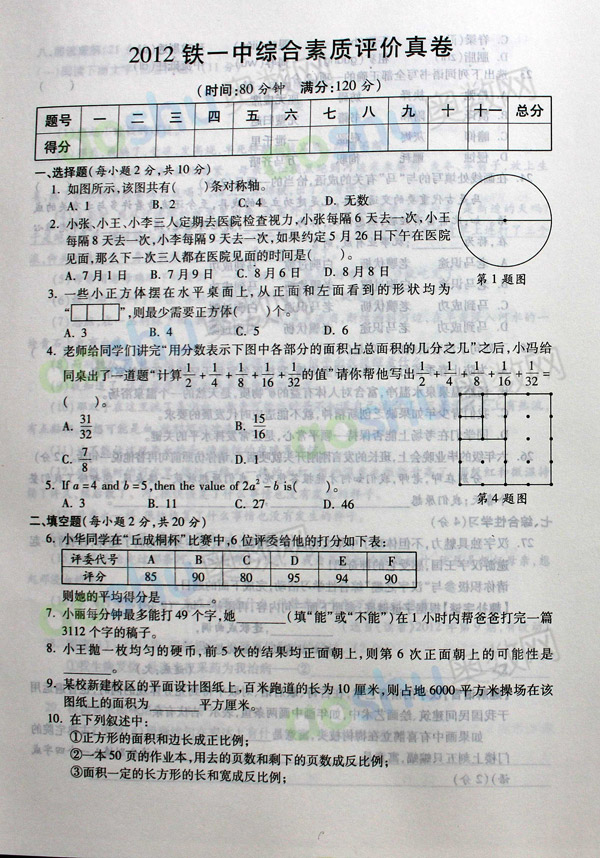 2012 铁一中综合素质评价真卷
(时间:80 分钟　满分:120 分)
题号 一 二 三 四 五 六 七 八 九 十 十一 总分
得分
一、选择题(每小题 2 分,共 10 分)
1. 如图所示,该图共有(　　)条对称轴。
A. 1　B. 2　C. 4　D. 无数
2. 小张、小王、小李三人定期去医院检查视力,小张每隔 6 天去一次,小王
每隔 8 天去一次,小李每隔 9 天去一次,如果约定 5 月 26 日下午在医院
见面,那么下一次三人都在医院见面的时间是(　　)。
A. 7 月 1 日　B. 7 月 9 日　C. 8 月 6 日　D. 8 月 8 日
第 1 题图
3. 一些小正方体摆在水平桌面上,从正面和左面看到的形状均为
“□□□”,则最少需要正方体(　　)个。
A. 3　B. 4　C. 5　D. 6
4. 老师给同学们讲完“用分数表示下图中各部分的面积占总面积的几分之几”之后,小冯给
同桌出了一道题“计算1/2+1/4+1/8+1/16+1/32的值”请你帮他写出1/2+1/4+1/8+1/16+1/32=
(　　)。
A. 31/32　B. 15/16
C. 7/8　D. 1
第 4 题图
5. If a=4 and b=5,then the value of 2a²-b is(　　).
A. 3　B. 11　C. 27　D. 46
二、填空题(每小题 2 分,共 20 分)
6. 小华同学在“丘成桐杯”比赛中,6 位评委给他的打分如下表:
评委代号 A B C D E F
评分 85 90 80 95 94 90
则她的平均得分是____
7. 小丽每分钟最多能打 49 个字,她______(填“能”或“不能”)在 1 小时内帮爸爸打完一篇
3112 个字的稿子。
8. 小王抛一枚均匀的硬币,前 5 次的结果均正面朝上,则第 6 次正面朝上的可能性是
______。
9. 某校新建校区的平面设计图纸上,百米跑道的长为 10 厘米,则占地 6000 平方米操场在该
图纸上的面积为______平方厘米。
10. 在下列叙述中:
①正方形的面积和边长成正比例;
②一本 50 页的作业本,用去的页数和剩下的页数成反比例;
③面积一定的长方形的长和宽成反比例;